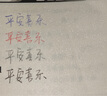 平安喜乐
平安喜乐
平安喜乐
平安喜乐